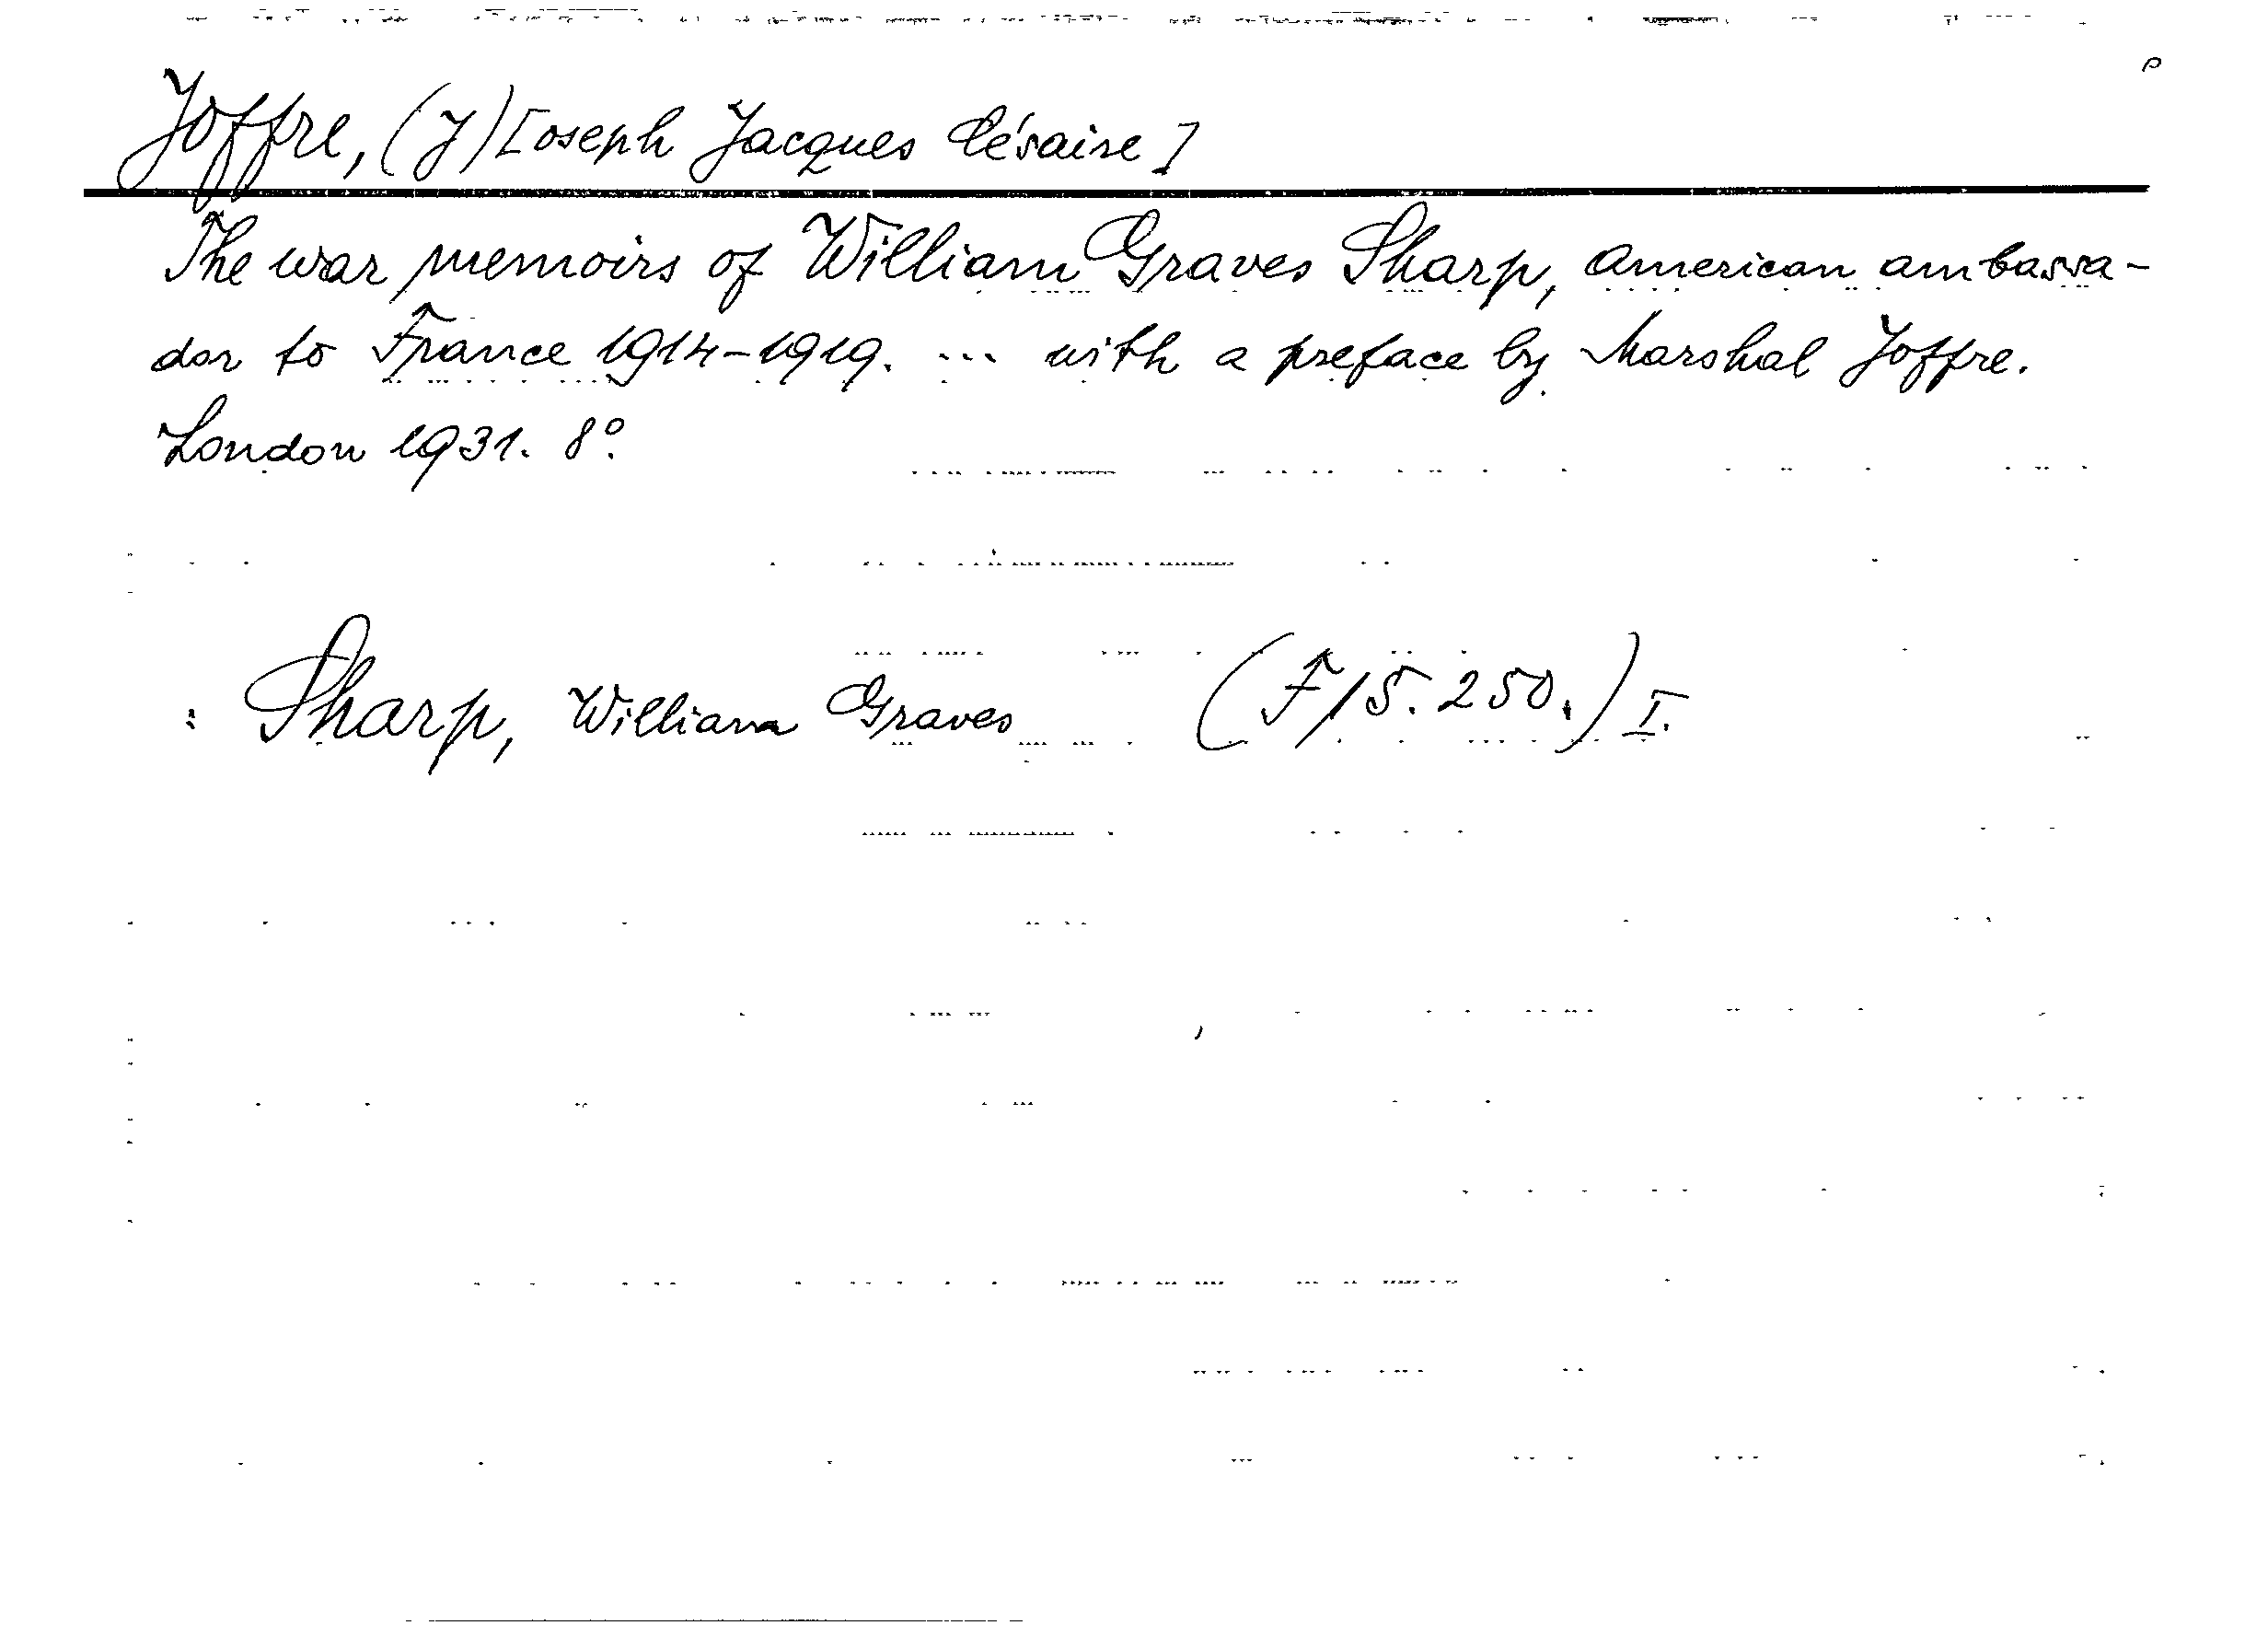 Joffre, (J)[oseph Jacques Césaire]
The war memoirs of William Graves Sharp, American ambassa-
dor to France 1914-1919. ... with a preface by Marshal Joffre.
London 1931. 8°.
: Sharp, William Graves (F/S. 250.) I.